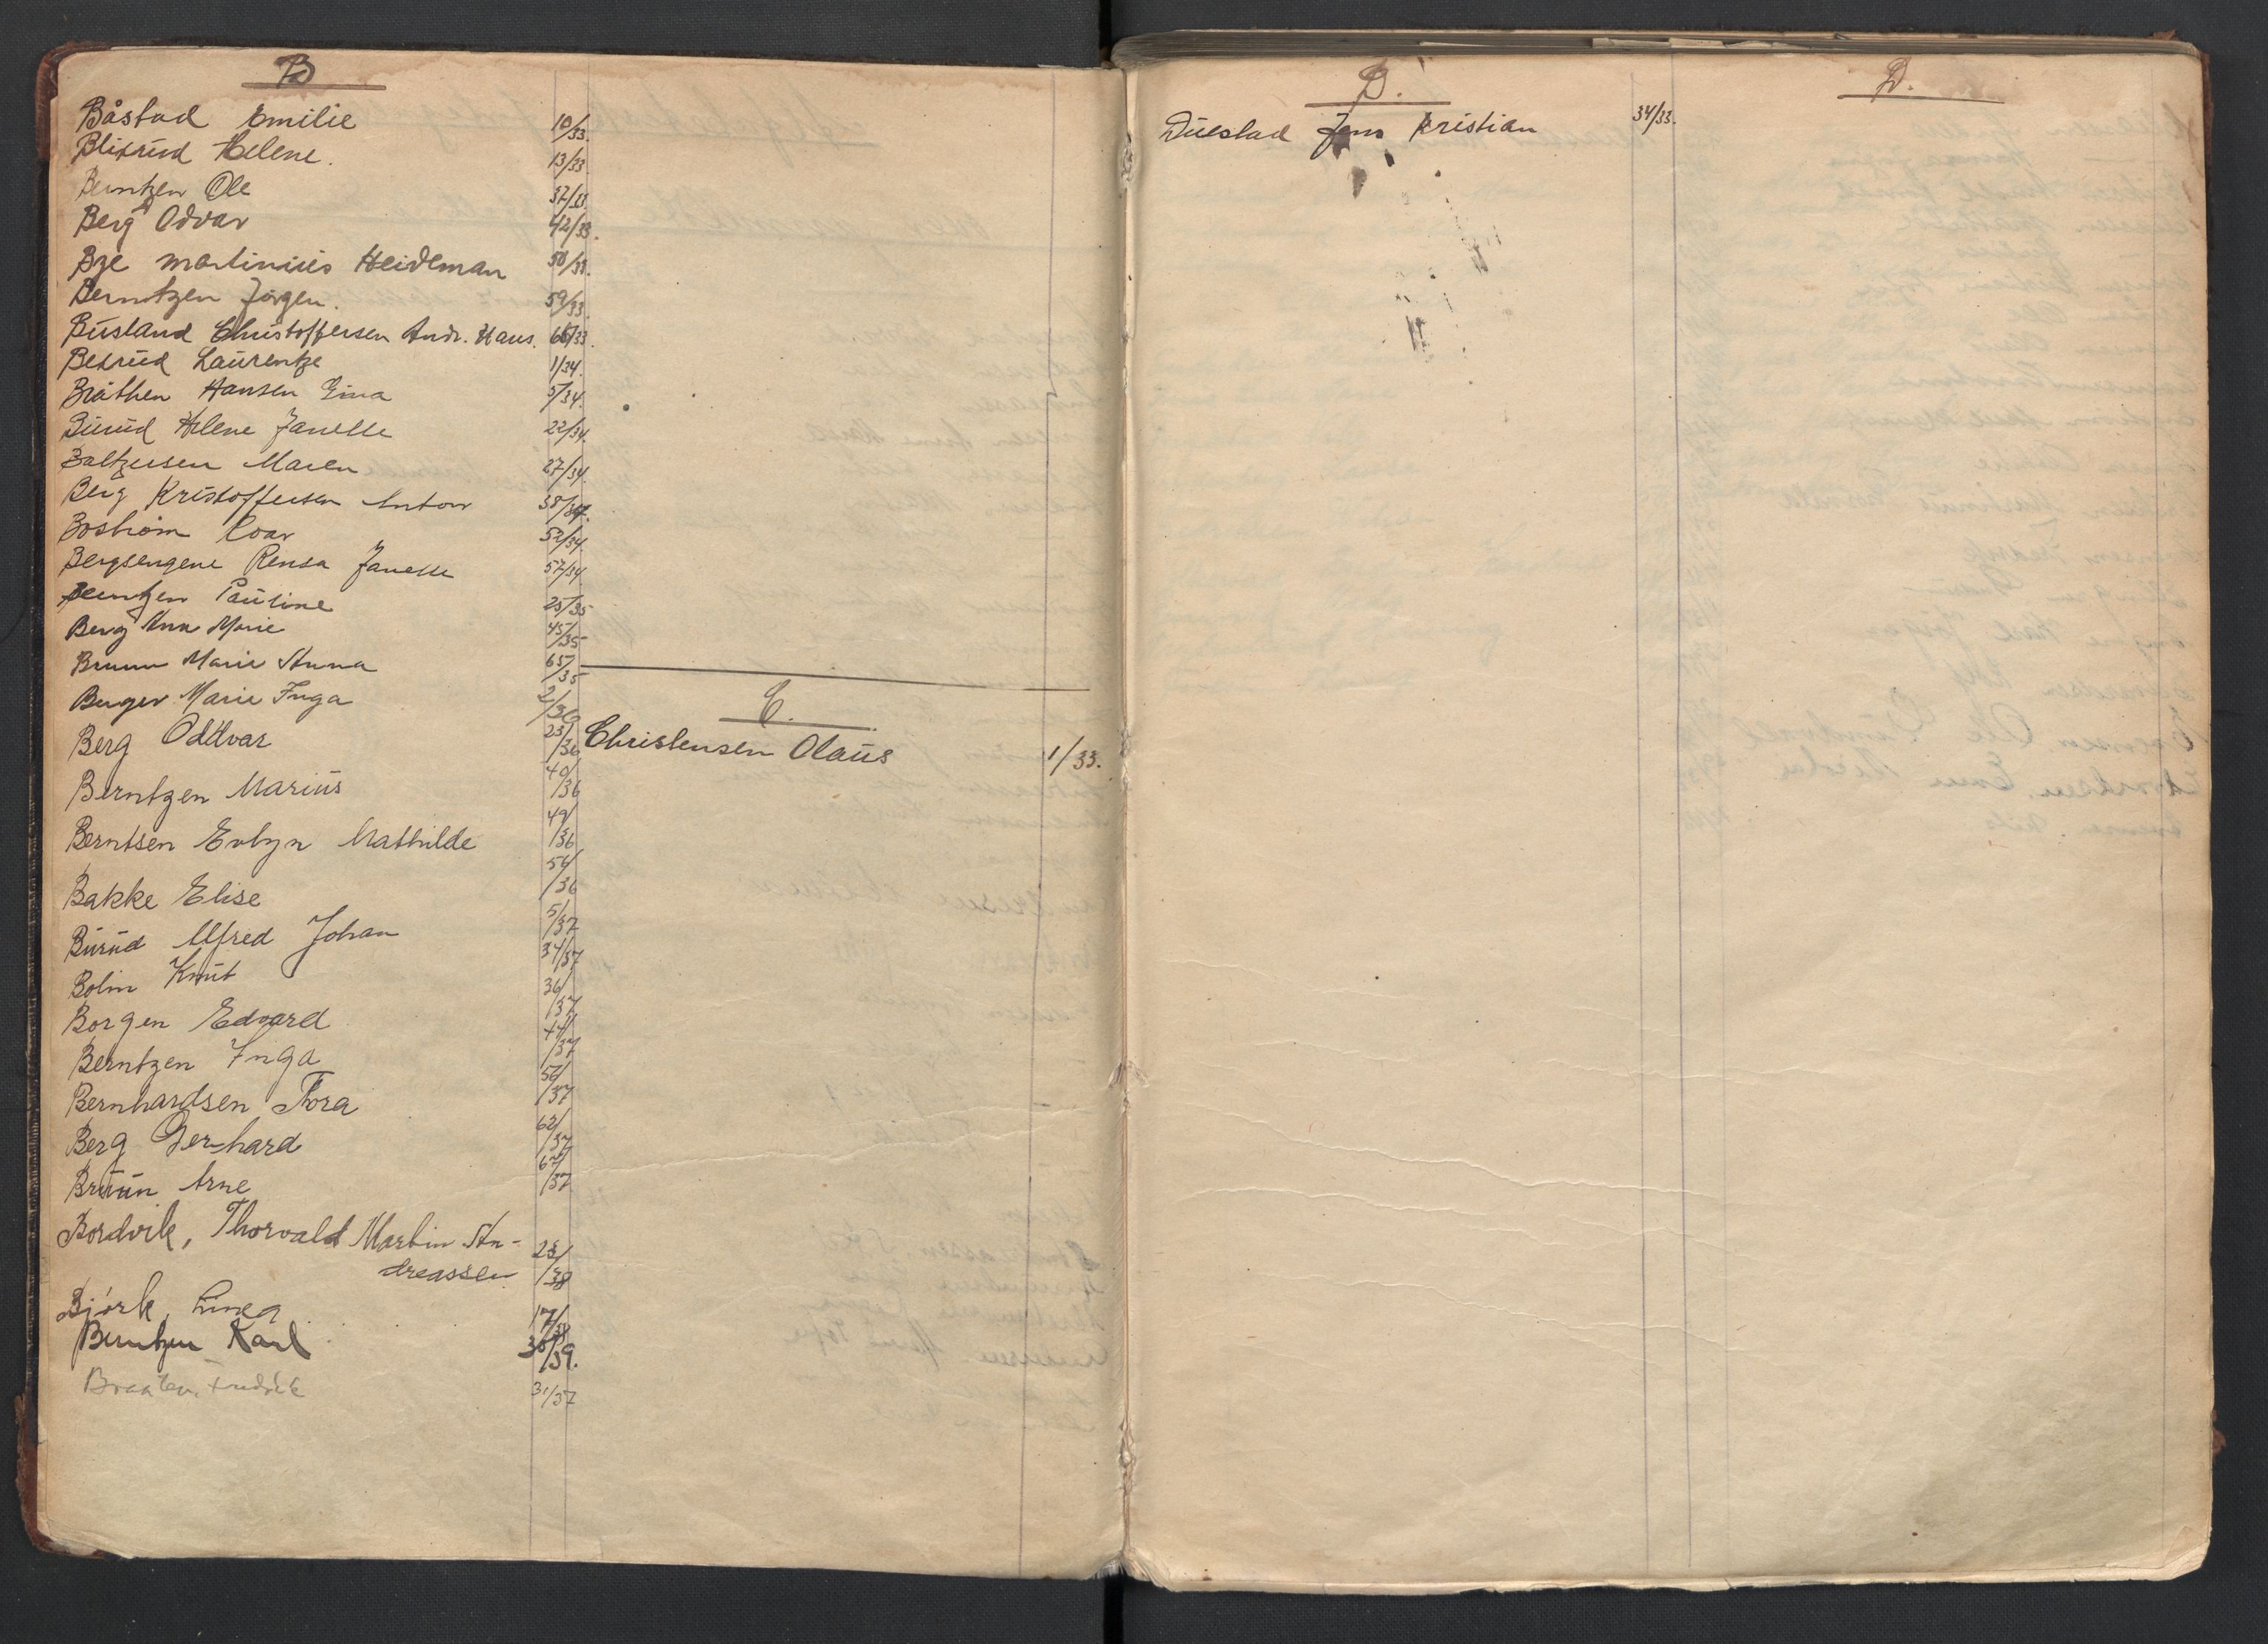 B
Båstad Emilie 10/33.
Blixrud Helene. 13/33.
Berntzen Ole 32/33.
Berg Odvar 42/33.
Bye Martinius Heideman 50/33.
Berntzen Jörgen. 59/33
Busland Christoffersen Andr. Hans. 66/33.
Bexrud Laurentze 1/34.
Bråthen Hansen Gina 5/34.
Burud Helene Janette 22/34.
Baltzersen Maren 27/34.
Berg Kristoffersen Anton 38/34.
Boström Roar 52/34.
Bergsengene Rensa Janette 57/34
Berntzen Pauline 25/35
Berg Ann Marie 45/35
Bruun Marie Anna 65/35
Berger Marie Inga 2/36
Berg Oddvar 23/36
Berntzen Marius 40/36
Berntsen Evlyn Mathilde 49/36
Bakke Elise 54/36
Burud Alfred Johan 5/37
Bolin Knut 34/37
Borgen Edvard 36/37
Berntzen Inga 44/37
Bernhardsen Thora 56/37
Berg Gerhard 62/37
Bruun Arne 67/37
Bordvik, Thorvald Martin An-
dreassen. 23/38
Björk, Linea. 17/38
Berntzen Karl 30/39.
Braaten, Fredrik 31/37
C.
Christensen Olaus 1/33.
D.
Duestad Jens Kristian 34/33.
D.